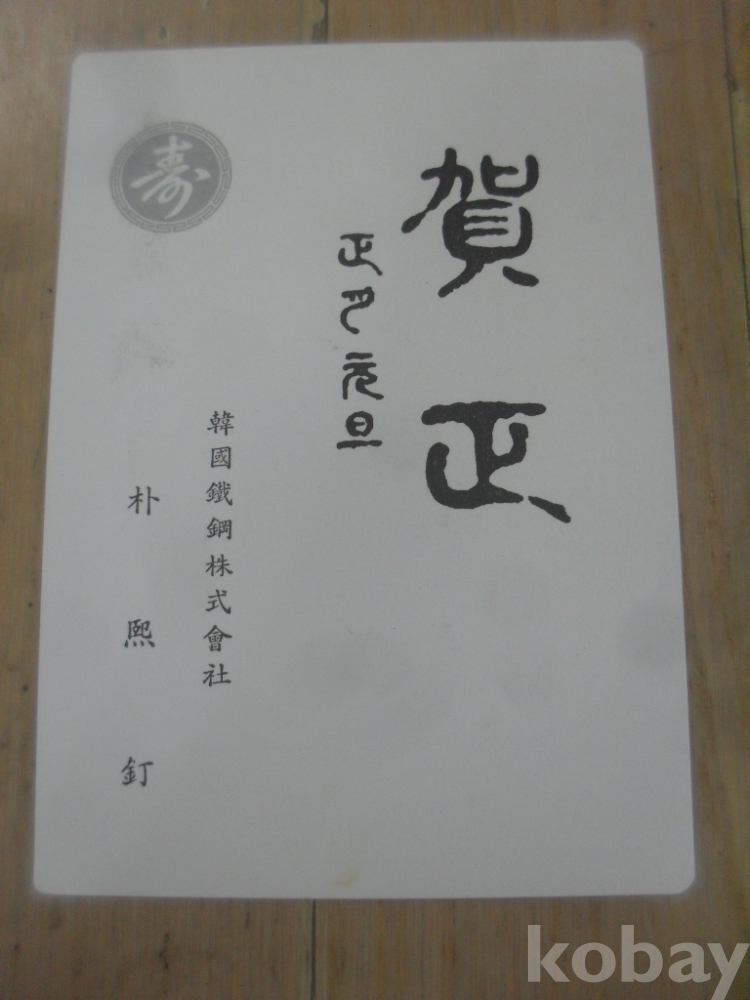 賀正
正月元旦
韓國鐵鋼株式會社
朴熙釘
寿
kobay